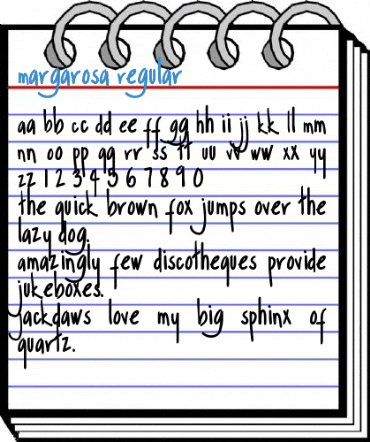 margarosa regular
aa bb cc dd ee ff gg hh ii jj kk ll mm
nn oo pp qq rr ss tt uu vv ww xx yy
zz 1 2 3 4 5 6 7 8 9 0
the quick brown fox jumps over the
lazy dog.
amazingly few discotheques provide
jukeboxes.
jackdaws love my big sphinx of
quartz.